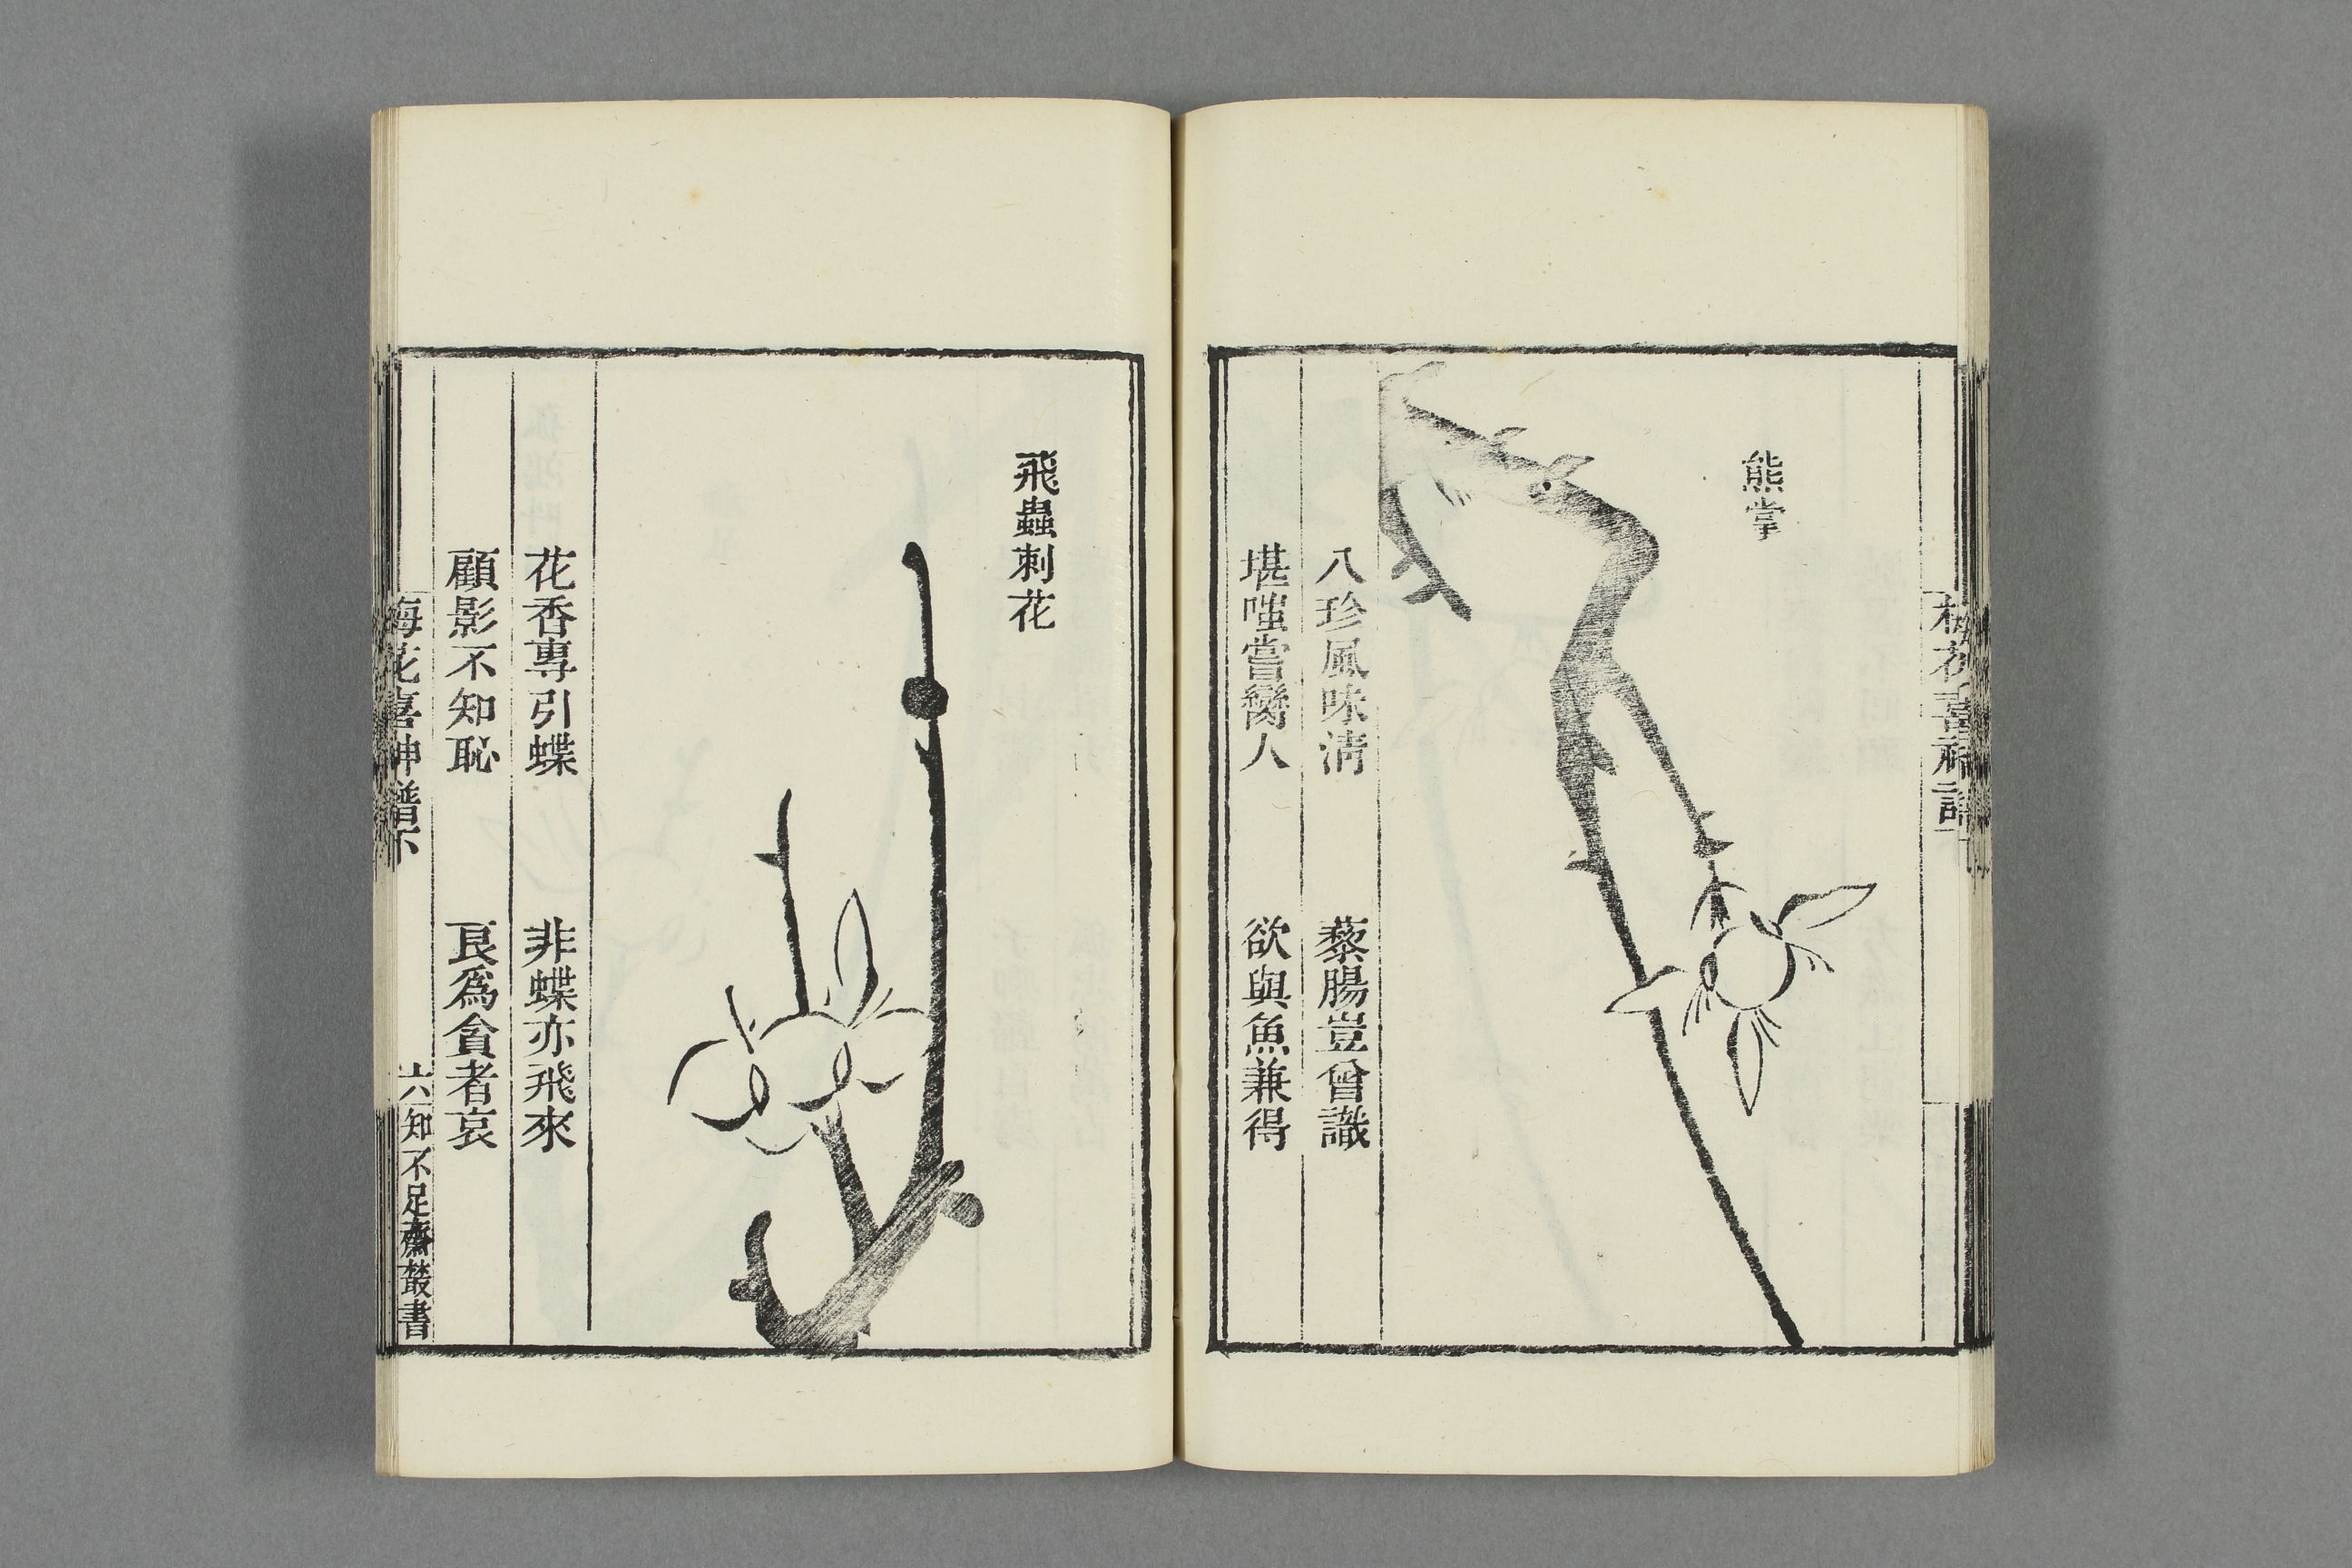 梅花喜神譜
熊掌
八珍風味淸　藜腸豈曾識
堪嗤嘗臠人　欲與魚兼得
飛蟲刺花
花香專引蝶　非蝶亦飛來
顧影不知恥　良爲貪者哀
梅花喜神譜下　六　知不足齋叢書